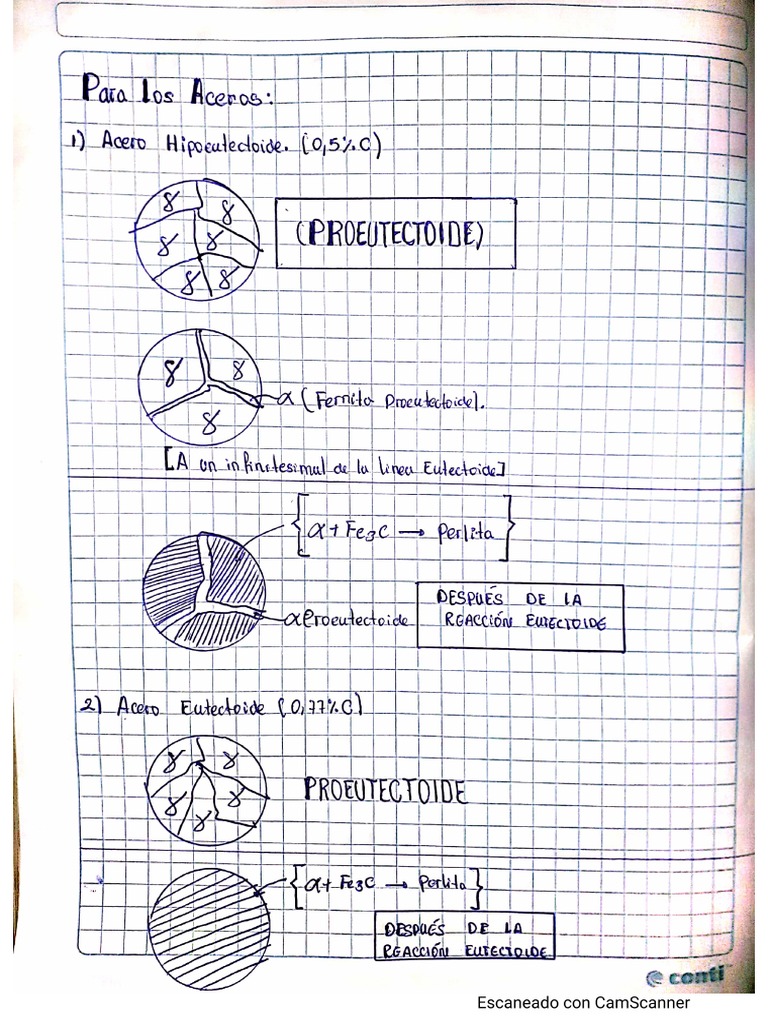 Para los Aceros:
1) Acero Hipoeutectoide. (0,5%.C)
γ γ
γ γ
γ γ
(PROEUTECTOIDE)
γ γ
γ
α (Ferrita Proeutectoide).
[A un infinitesimal de la linea Eutectoide]
{α + Fe3C → Perlita}
α Proeutectoide
DESPUÉS DE LA
REACCIÓN EUTECTOIDE
2) Acero Eutectoide (0,77%.C)
γ γ
γ γ
γ
PROEUTECTOIDE
{α + Fe3C → Perlita}
DESPUÉS DE LA
REACCIÓN EUTECTOIDE
conti
Escaneado con CamScanner